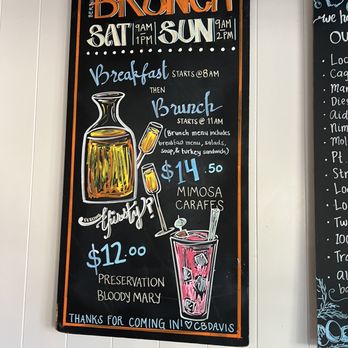 BRUNCH
SAT 9AM 1PM SUN 9AM 2PM
Breakfast STARTS @ 8AM
THEN
Brunch
STARTS @ 11AM
(Brunch menu includes
breakfast menu, salads,
soup, & turkey sandwich)
$14.50
MIMOSA
CARAFES
thirsty?
$12.00
PRESERVATION
BLOODY MARY
THANKS FOR COMING IN! ♡ CBDAVIS
we ha
OU
Loc
Cag
Mar
Die
Aid
Nin
Mol
Pt.
Str
Loc
Lo
Tw
100
Tra
al
ba